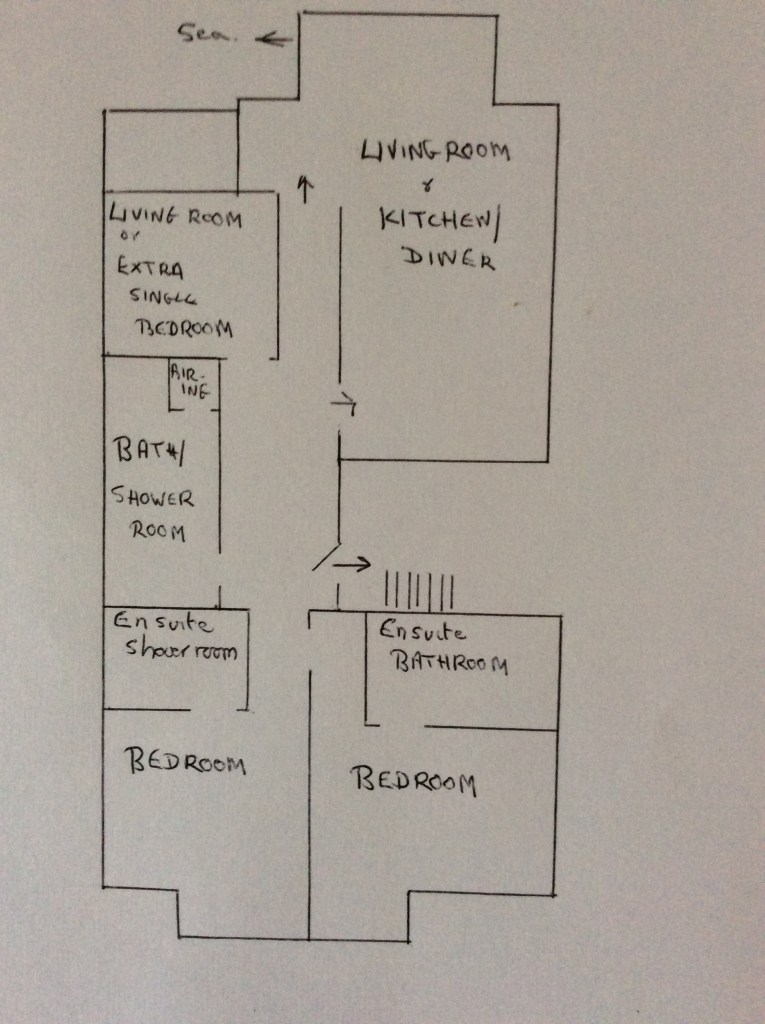 Sea.
LIVING ROOM
&
KITCHEN/
DINER
LIVING ROOM
or
EXTRA
SINGLE
BEDROOM
AIR-
ING
BATH/
SHOWER
ROOM
Ensuite
Shower room
Ensuite
BATHROOM
BEDROOM
BEDROOM